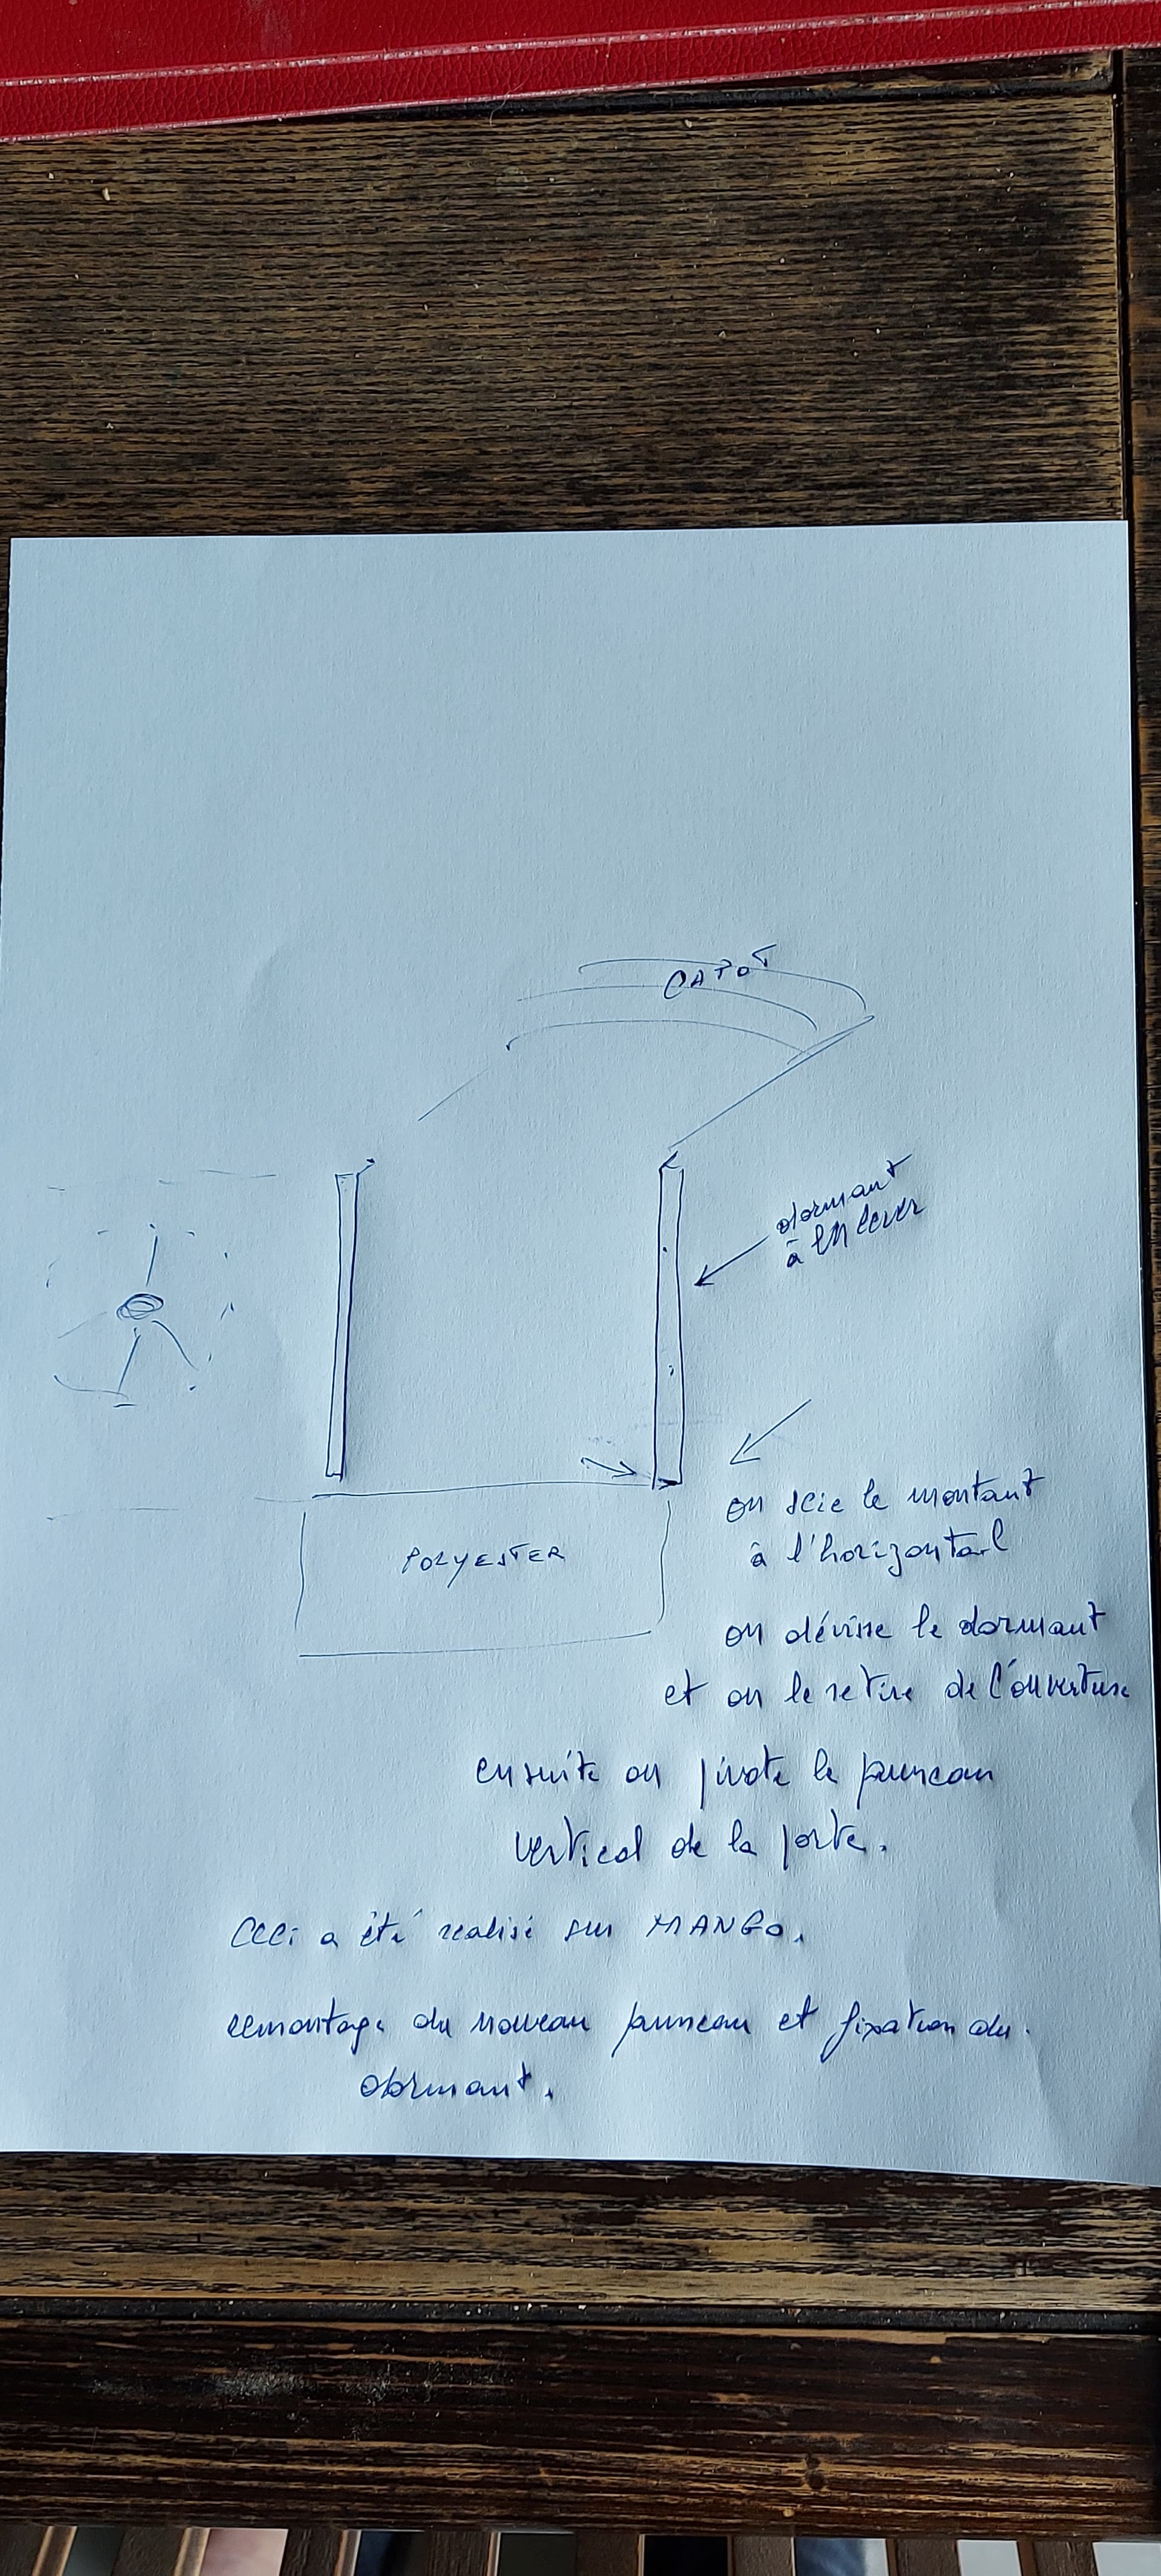 CAPOT
dormant
à enlever
on scie le montant
à l'horizontal
POLYESTER
on dévisse le dormant
et on le retire de l'ouverture
ensuite on pivote le panneau
vertical de la porte.
Ceci a été realisé sur MANGO.
remontage du nouveau panneau et fixation du
dormant.